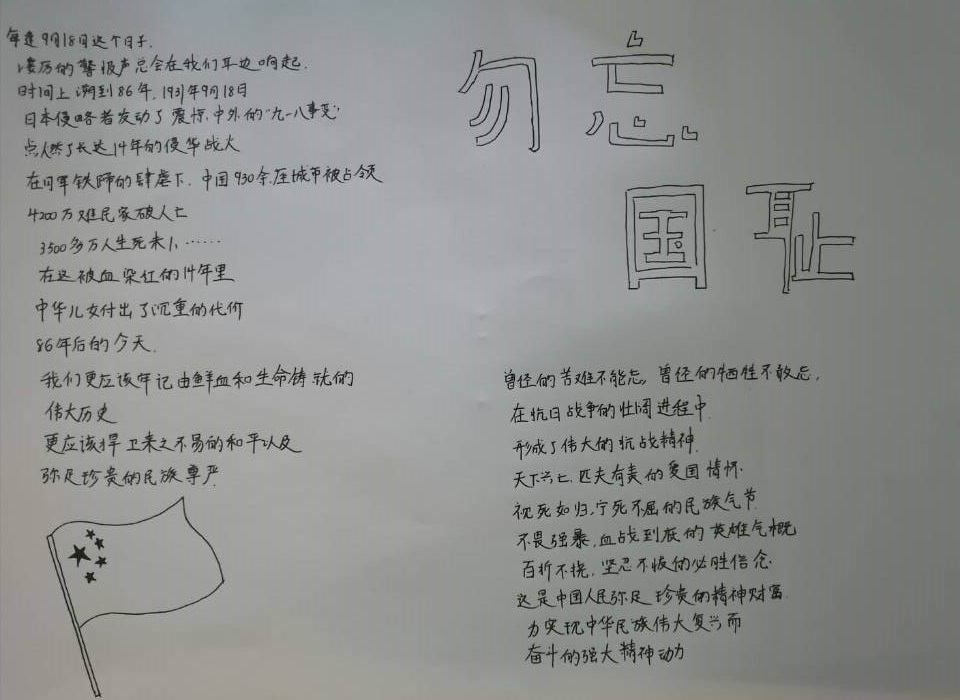 每逢9月18日这个日子.
凄厉的警报声总会在我们耳边响起.
时间上溯到86年,1931年9月18日
日本侵略者发动了震惊中外的"九一八事变"
点燃了长达14年的侵华战火
在日军铁蹄的肆虐下.中国930余座城市被占领
4200万难民家破人亡
3500多万人生死未卜……
在这被血染红的14年里
中华儿女付出了沉重的代价
86年后的今天.
我们更应该牢记由鲜血和生命铸就的
伟大历史
更应该捍卫来之不易的和平以及
弥足珍贵的民族尊严
勿忘
国耻
曾经的苦难不能忘,曾经的牺牲不敢忘.
在抗日战争的壮阔进程中.
形成了伟大的抗战精神.
天下兴亡.匹夫有责的爱国情怀.
视死如归,宁死不屈的民族气节.
不畏强暴,血战到底的英雄气概
百折不挠,坚忍不拔的必胜信念.
这是中国人民弥足珍贵的精神财富.
力实现中华民族伟大复兴而
奋斗的强大精神动力